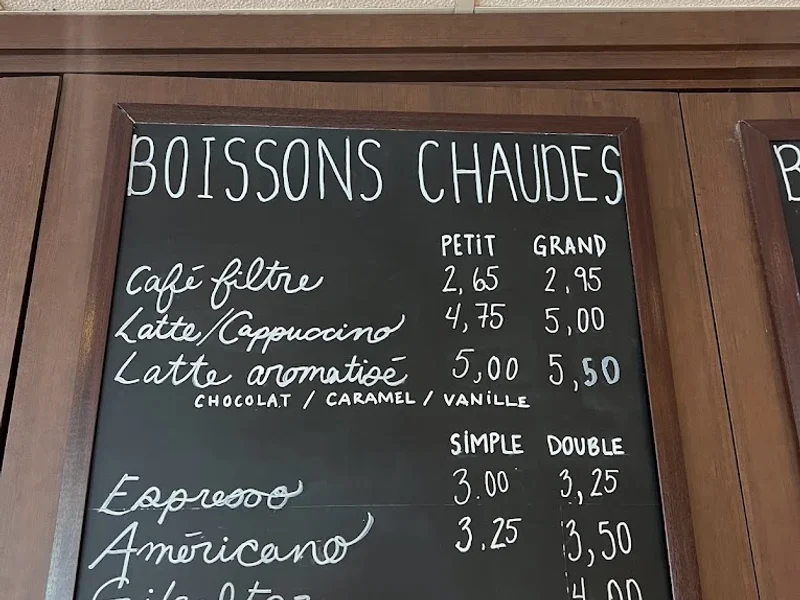 BOISSONS CHAUDES
PETIT GRAND
Café filtre 2,65 2,95
Latte/Cappuccino 4,75 5,00
Latte aromatisé 5,00 5,50
CHOCOLAT / CARAMEL / VANILLE
SIMPLE DOUBLE
Espresso 3.00 3,25
Américano 3.25 3,50
4,00
B